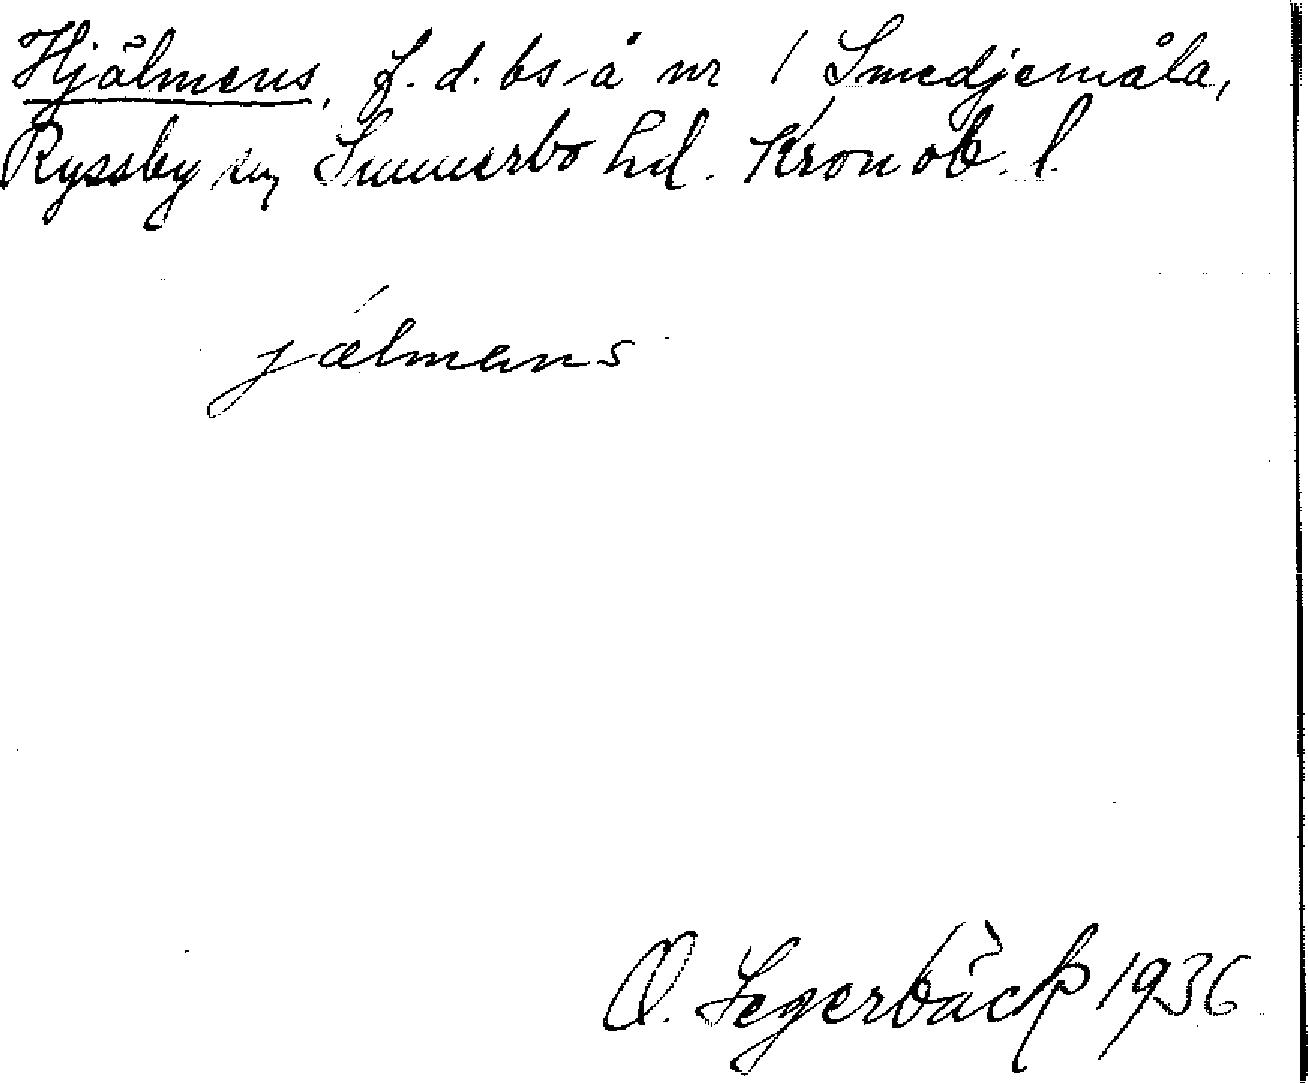 Hjälmens, f.d. bs å nr 1 Smedjemåla,
Ryssby sn, Sunnerbo hd. Kronob. l.
jälmans
O. Segerbäck 1936